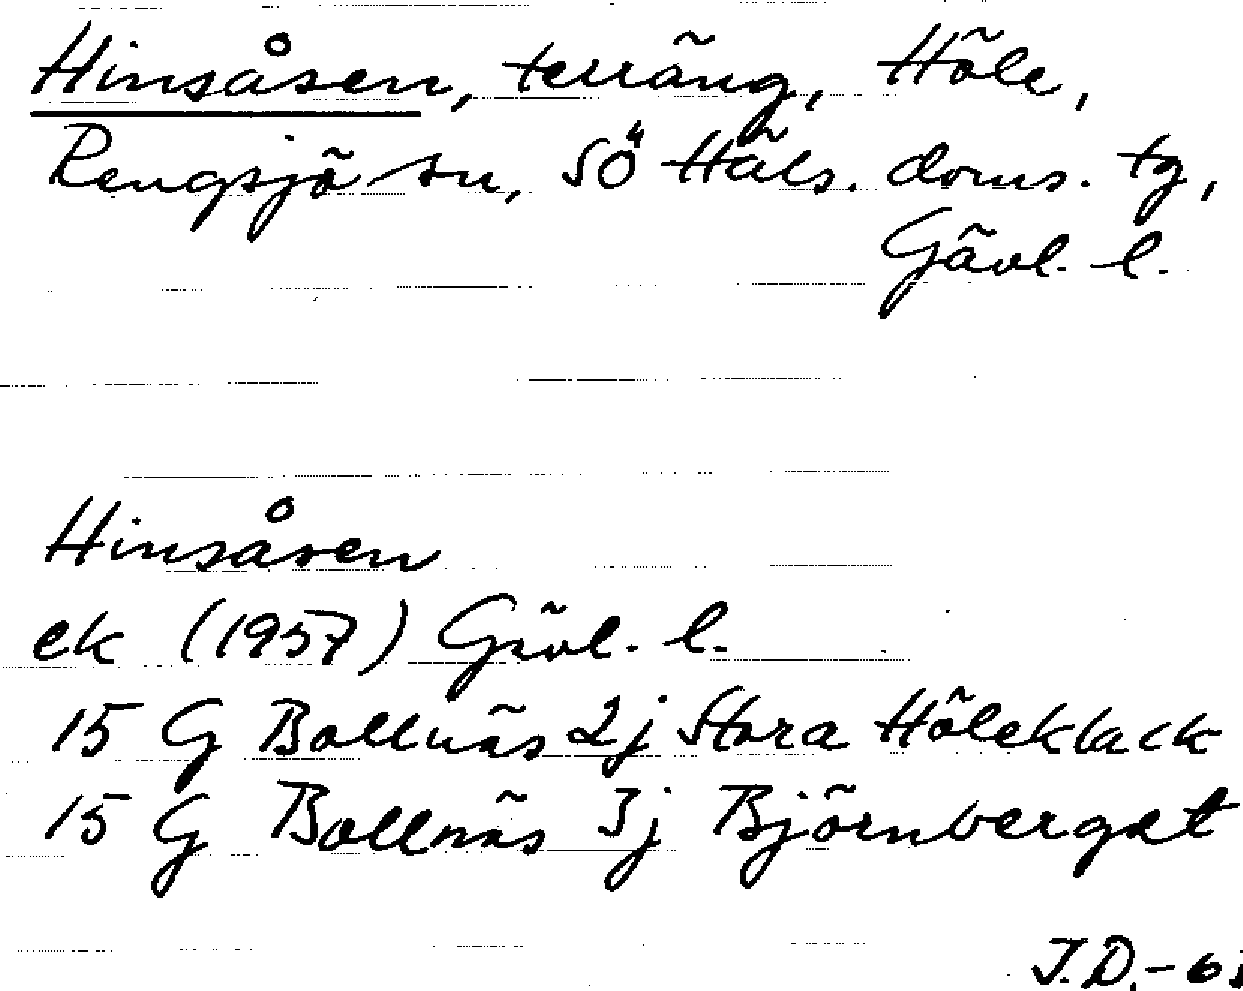 Hinsåsen, terräng, Höle,
Rengsjö sn, SÖ Häls. doms. tg,
Gävl. l.
Hinsåsen
ek (1957) Gävl. l.
15 G Bollnäs 2j Stora Höleklack
15 G Bollnäs 3j Björnberget
J.D.